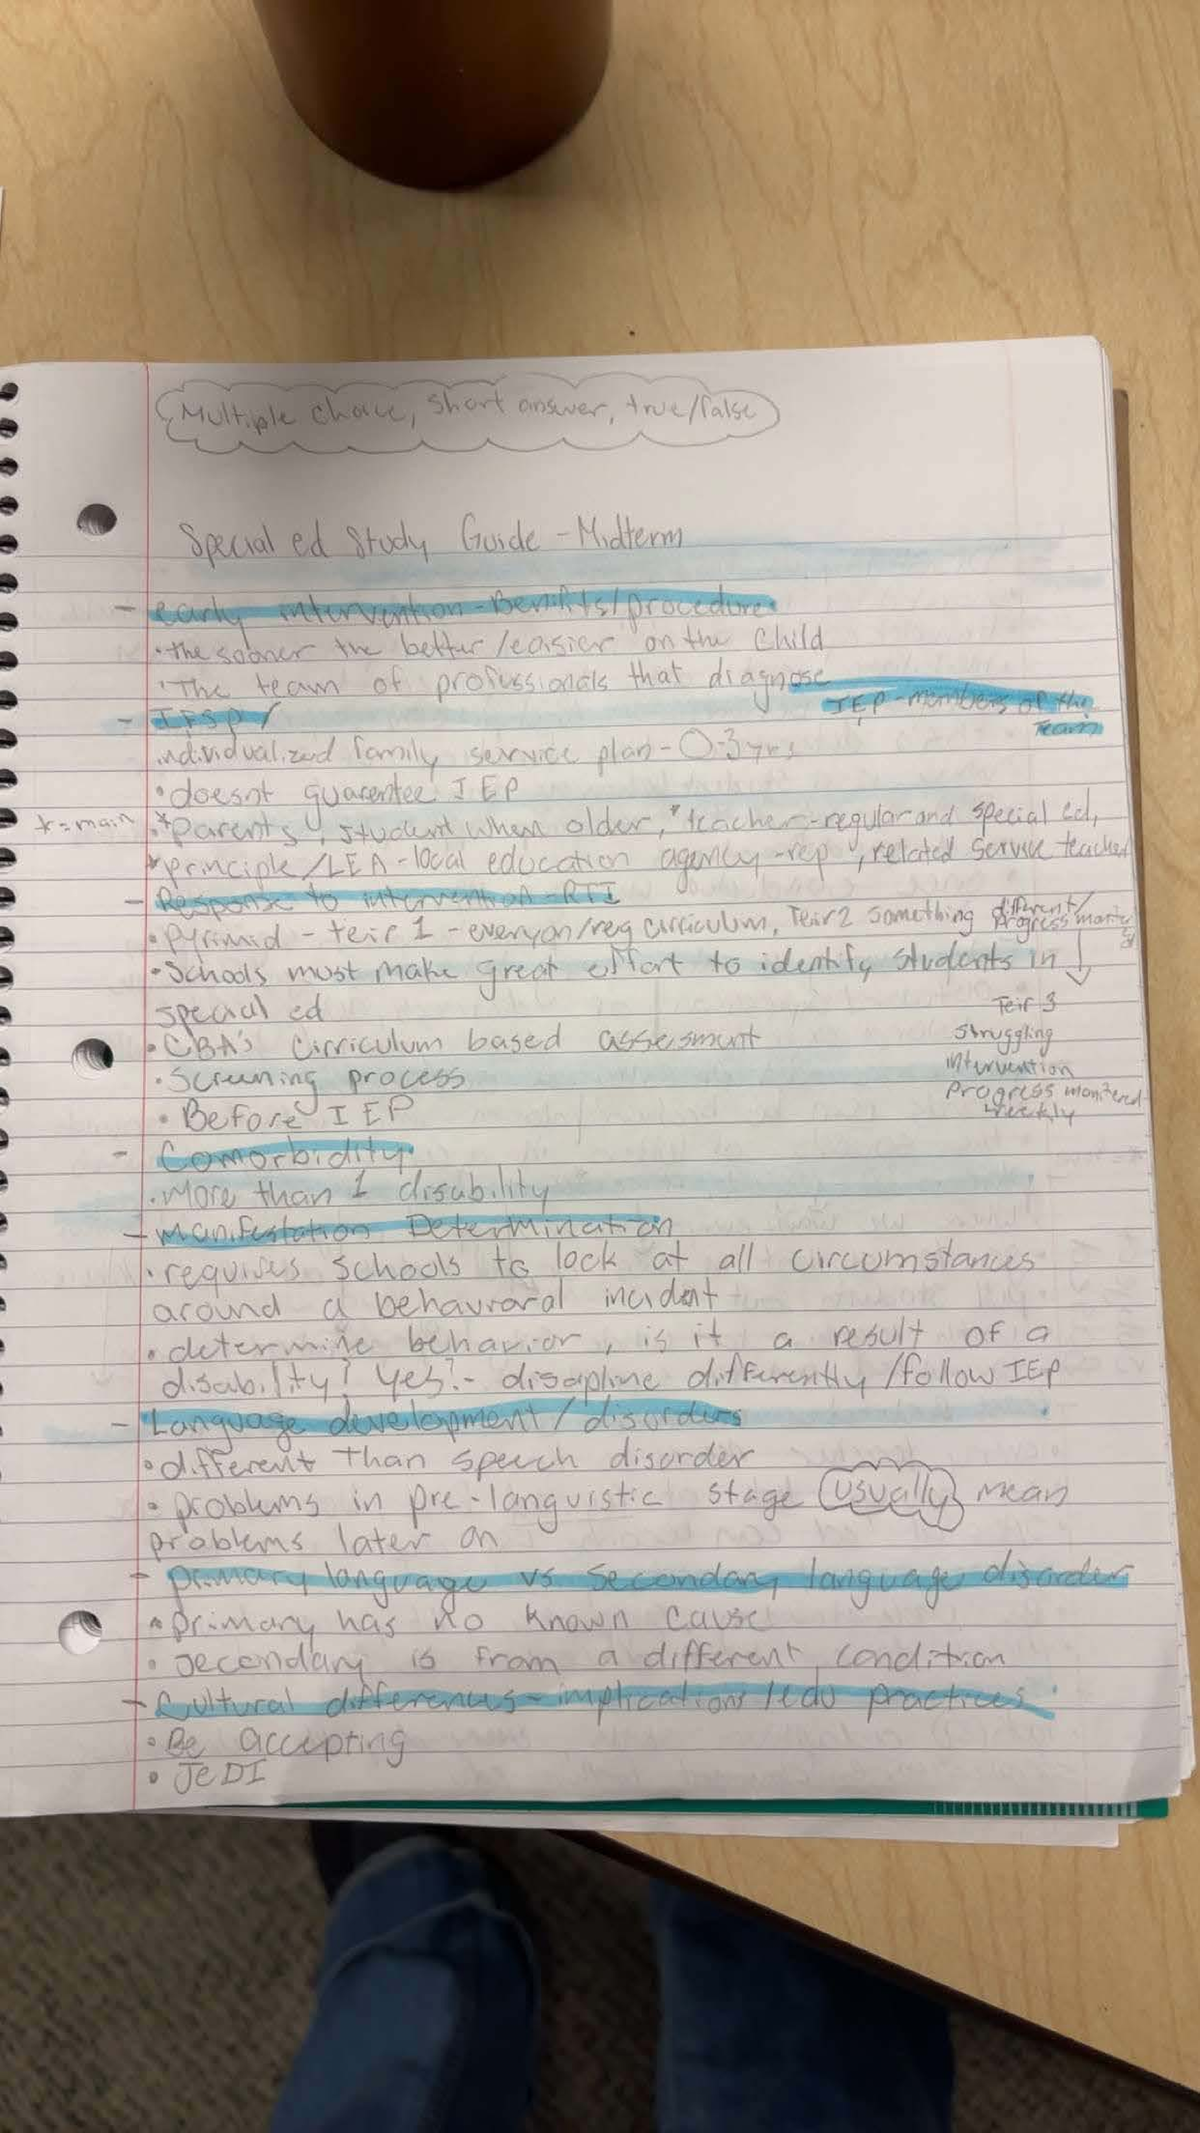 Multiple choice, short answer, true/false
Special ed Study Guide - Midterm
- early intervention - Benifits/procedure
• the sooner the better/easier on the child
• The team of professionals that diagnose
IEP - members of the Team
- IFSP/
individualized family service plan - 0-3 yrs
• doesnt guarentee IEP
*=main • *Parents, student when older, *teacher - regular and special ed,
*principle/LEA - local education agency - rep, related service teacher
- Response to intervention - RTI
• pyrimid - teir 1 - everyon/reg curriculum, Teir 2 something different/ Progress monitor
• Schools must make great effort to identify students in
special ed
Teir 3
struggling
intervention
Progress monitered
weekly
• CBA's cirriculum based assesment
• Screening process
• Before IEP
- Comorbidity
• more than 1 disability
- Manifestation Determination
• requires schools to look at all circumstances
around a behavioral incident
• determine behavior, is it a result of a
disability? Yes?- discipline differently/follow IEP
- Language development/disorders
• different than speech disorder
• problems in pre-languistic stage usually mean
problems later on
- primary language vs secondary language disorder
• primary has no known cause
• secondary is from a different condition
- Cultural differences - implications/edu practices
• Be accepting
• JeDI